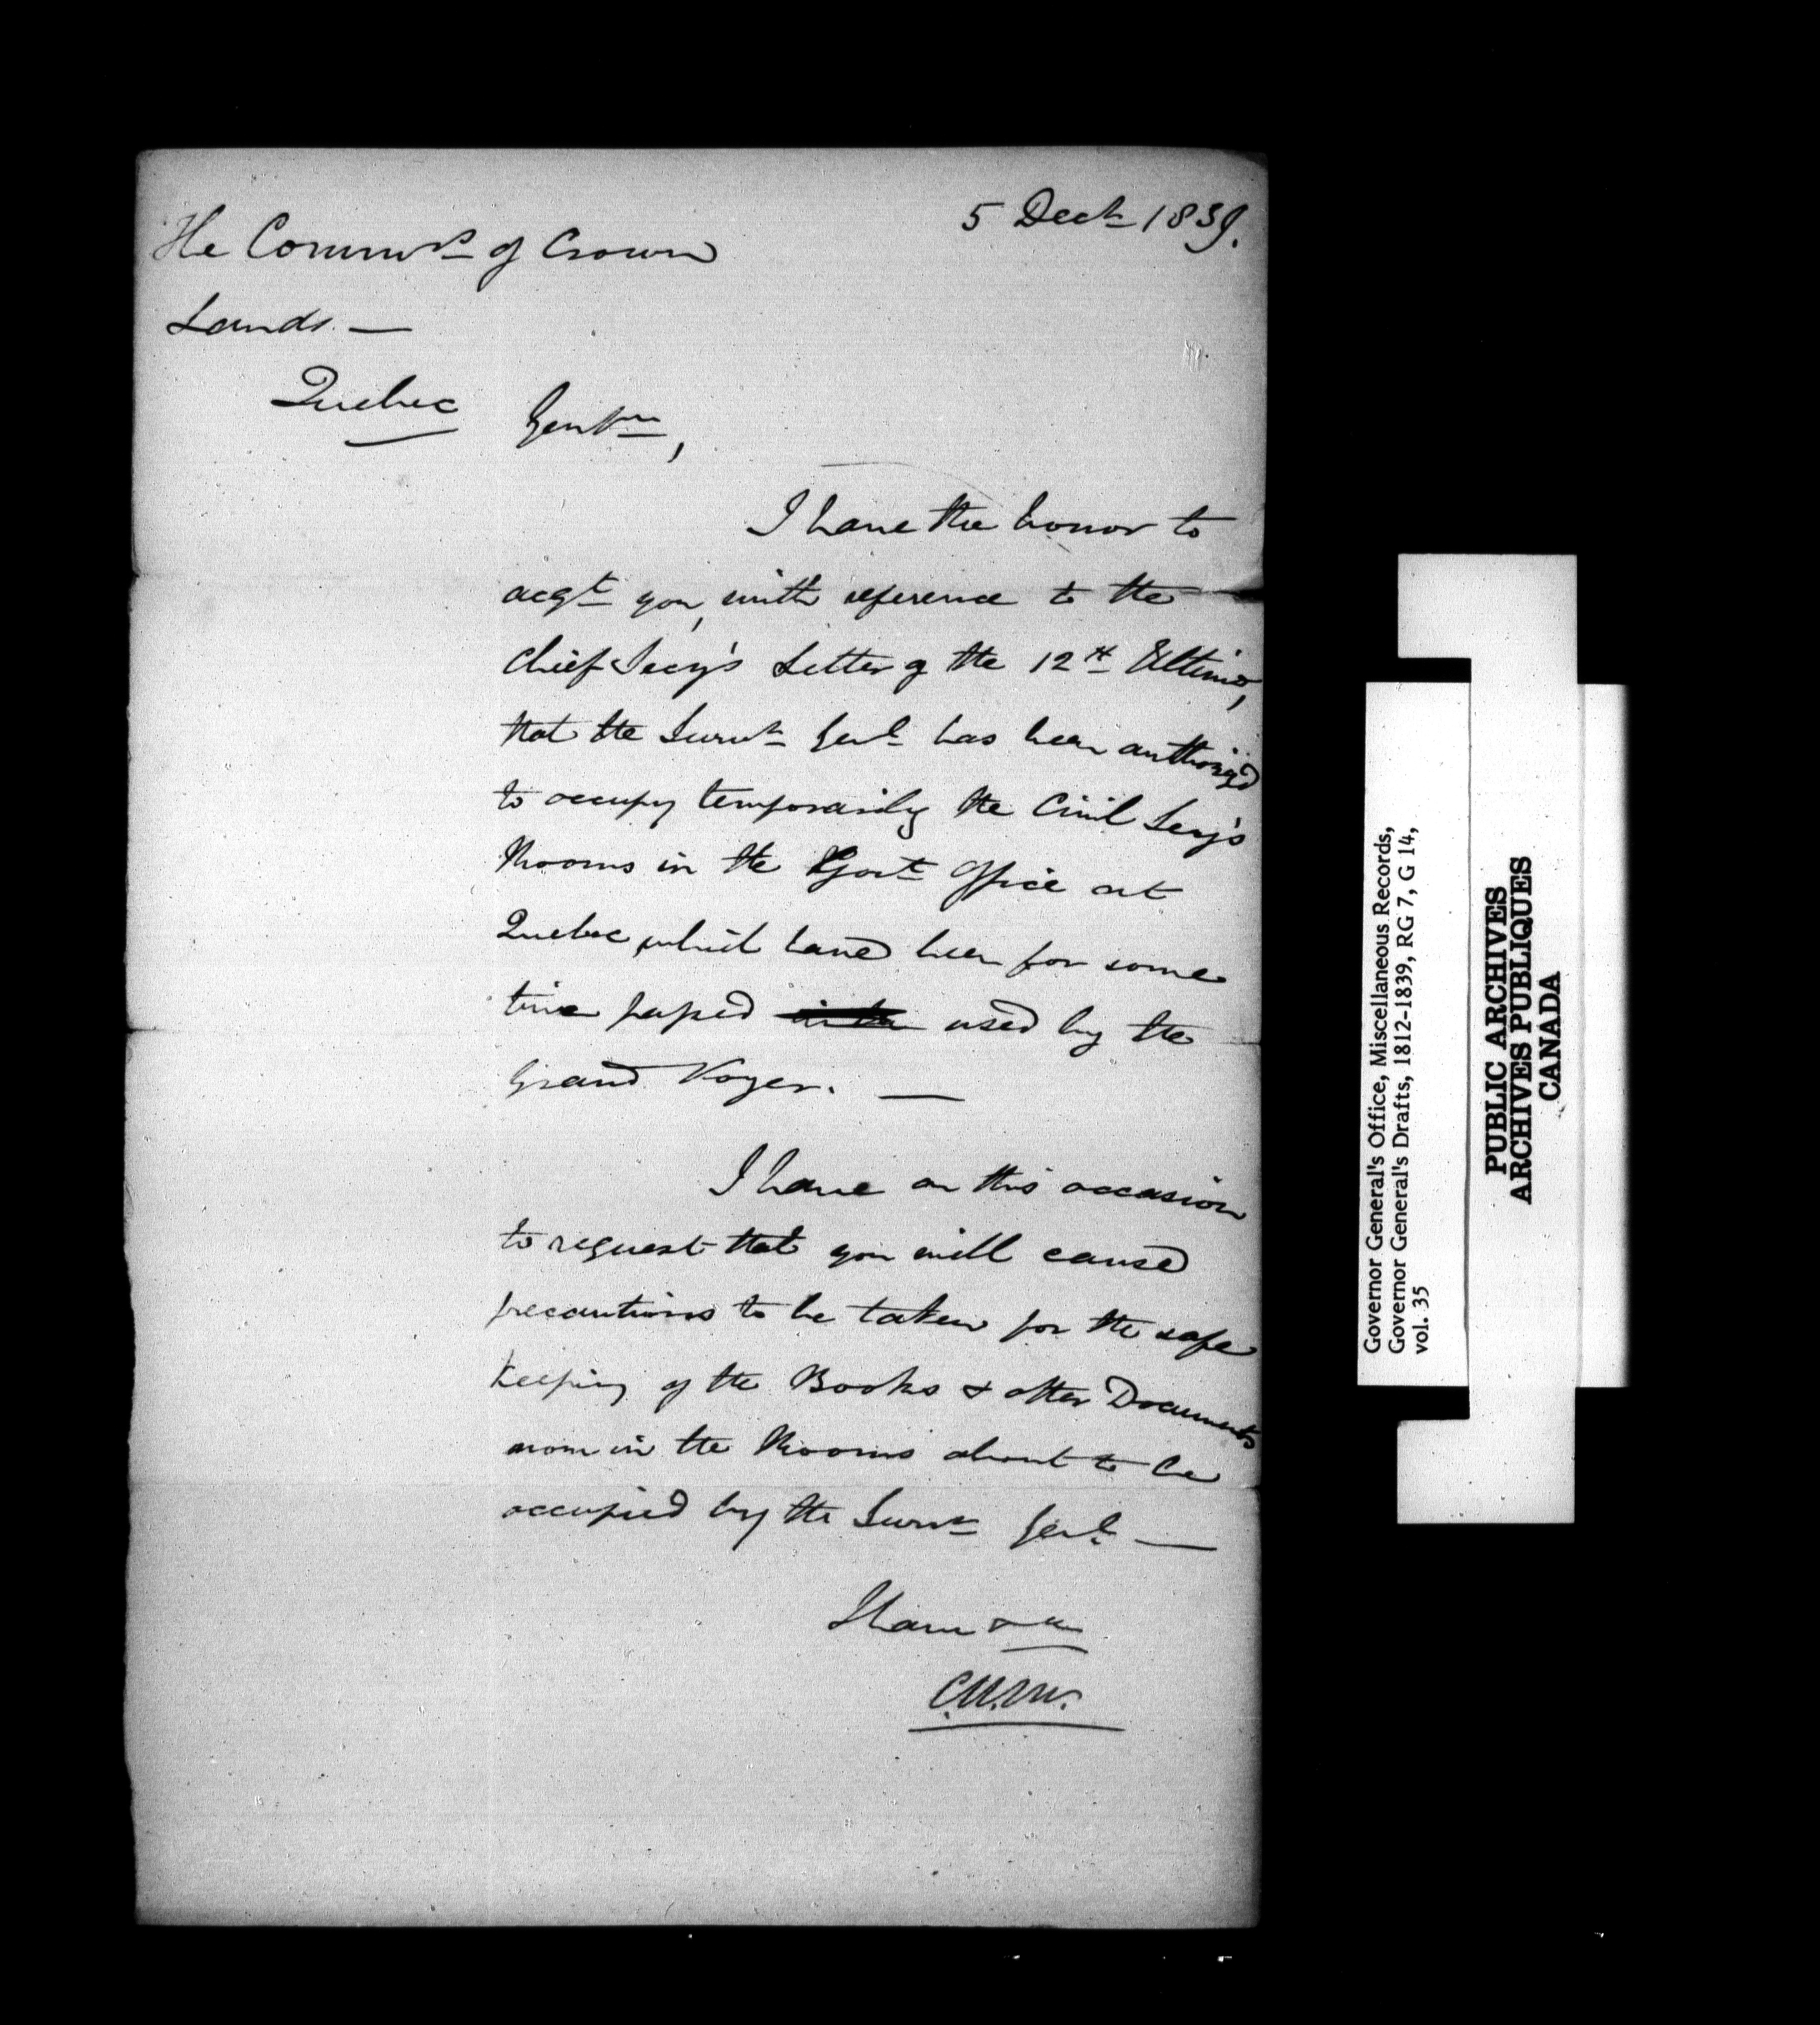 5 Decr 1839.
The Commrs of Crown
Lands. —
Quebec
Gentn,
I have the honor to
acqt you, with reference to the
Chief Secy's Letter of the 12th Ultimo,
that the Survr Genl has been authorized
to occupy temporarily the Civil Secy's
Rooms in the Govt Office at
Quebec, which have been for some
time passed used by the
Grand Voyer. —
I have on this occasion
to request that you will cause
precautions to be taken for the safe
keeping of the Books & other Documents
now in the Rooms about to be
occupied by the Survr Genl —
I have &c
Governor General's Office, Miscellaneous Records,
Governor General's Drafts, 1812-1839, RG 7, G 14,
vol. 35
PUBLIC ARCHIVES
ARCHIVES PUBLIQUES
CANADA